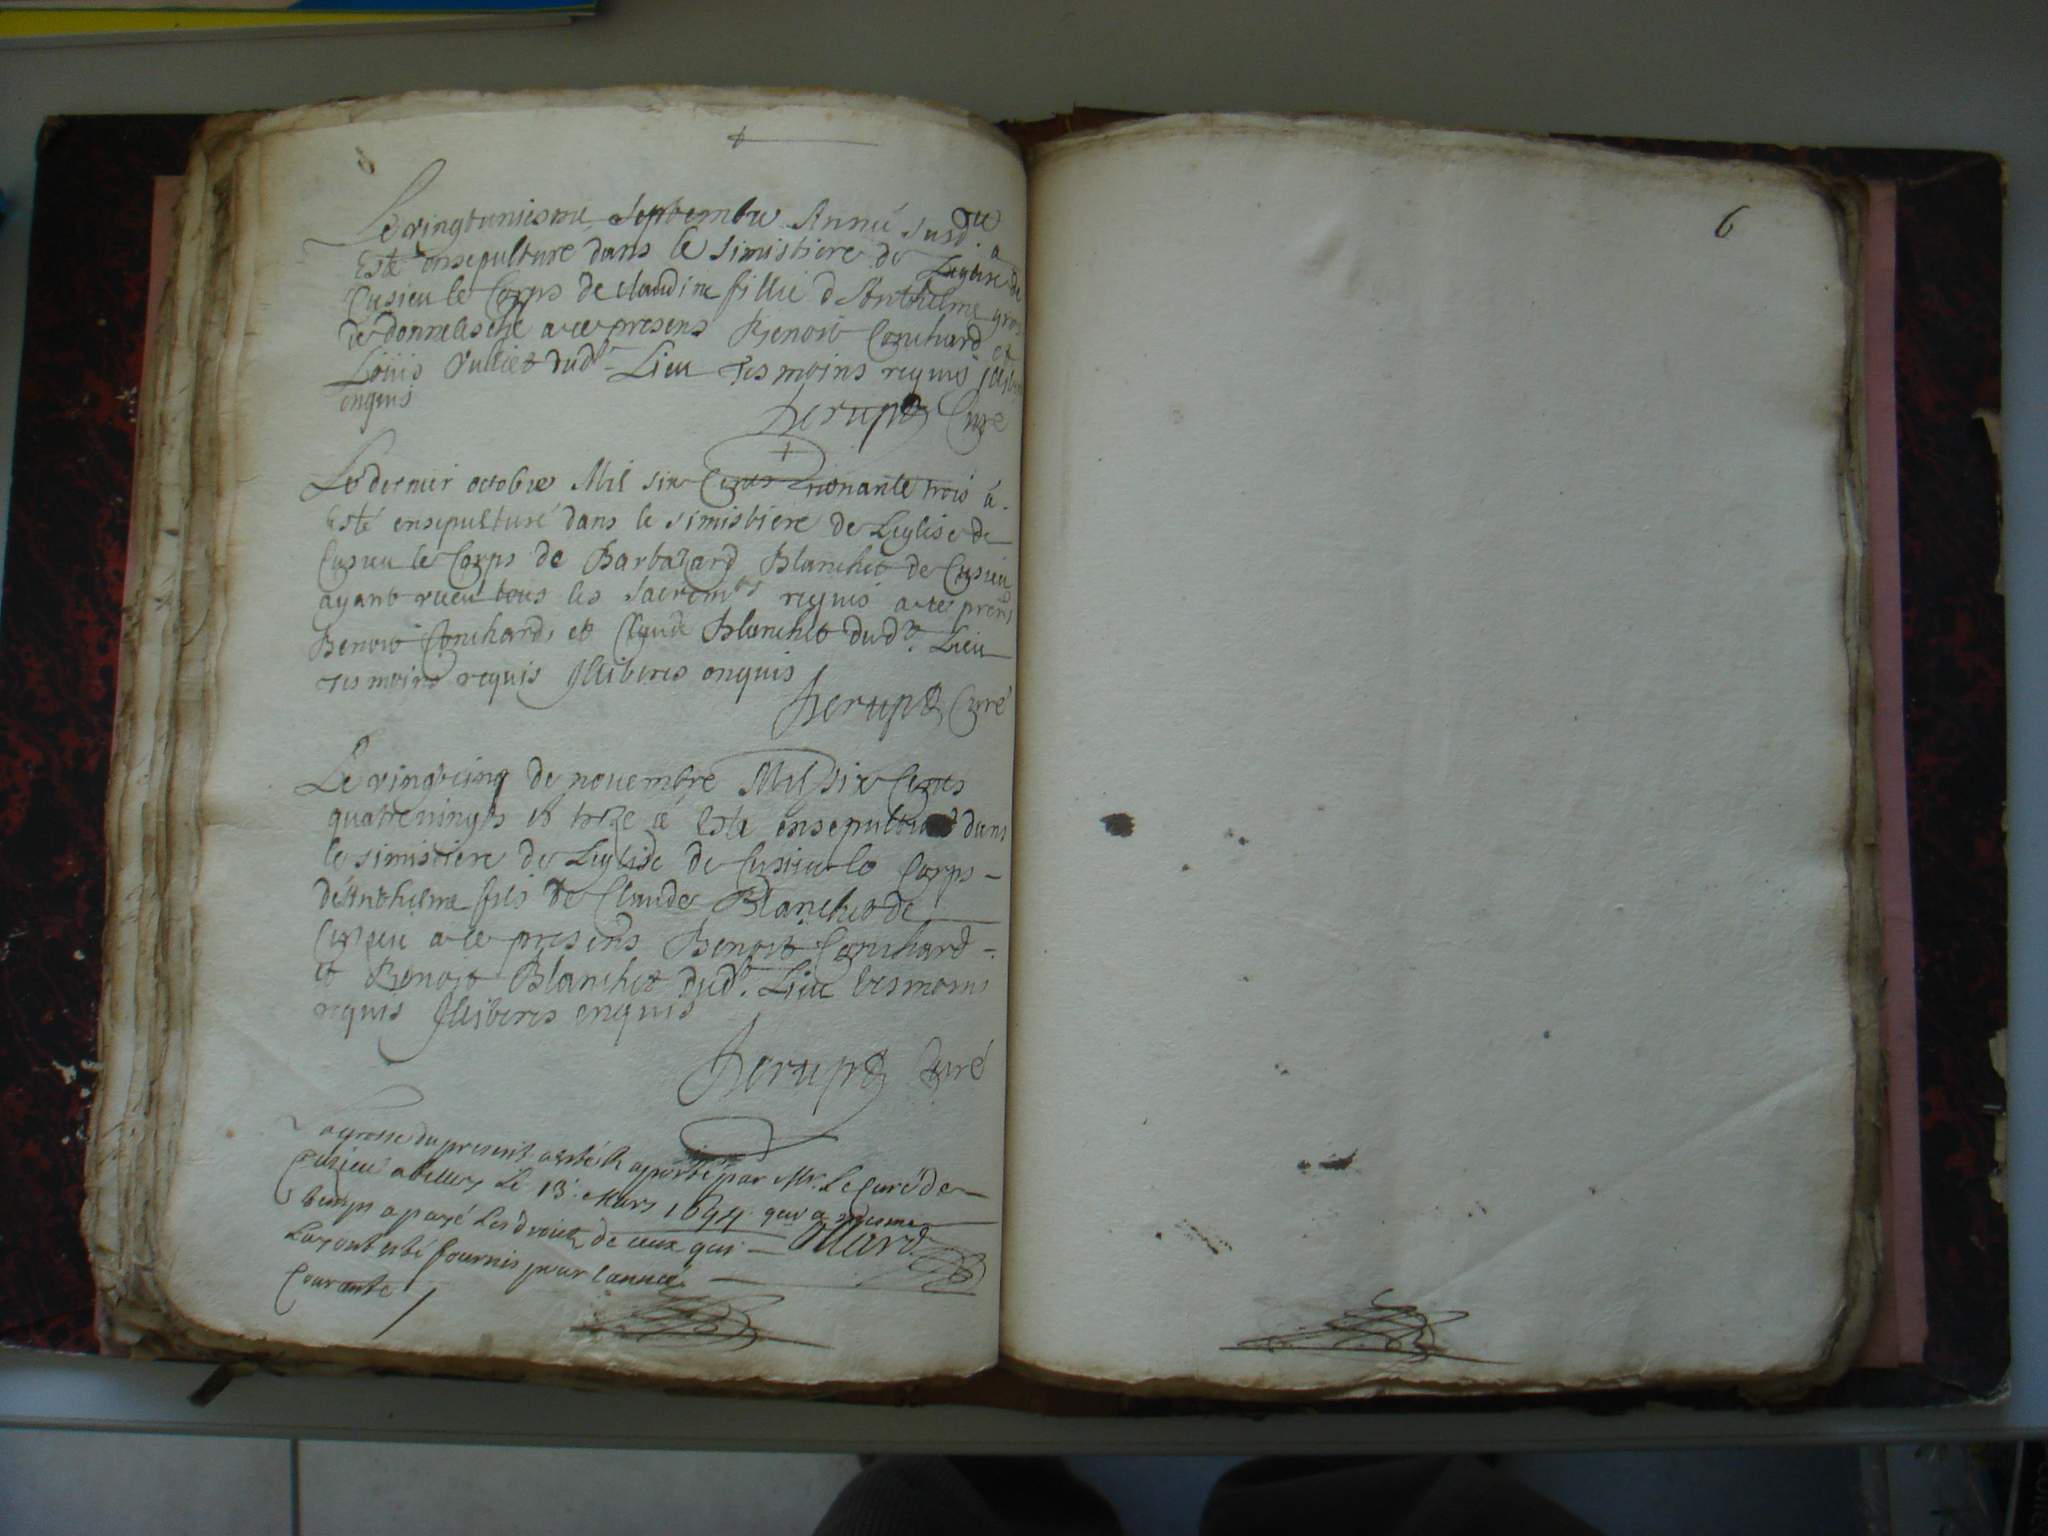 Le vingtuniesme Septembre Année susd.te a
Esté ensepulturé dans le simistiere de Leglise de
Cusieu le Corps de claudine fillie d Anthelme gros
de donnelesche a ce presens Benoit Conchard et
Louis Vulliet dud.t Lieu Tesmoins requis Illiteres
enquis
Curé
Le dernier octobre Mil six Cents nonante trois à
Esté ensepulturé dans le simistiere de Leglise de
Cusieu le Corps de Barbazard Blanchet de Cusieu
ayant receu tous les Sacrem.ts requis a ce presens
Benoit Conchard, et Claude Blanchet dud.t Lieu
Tesmoins requis Illiteres enquis
Curé
Le vingtcinq de novembre Mil six Cents
quatrevingts et treze a Esté ensepulturé dans
le simistiere de Leglise de Cusieu le Corps
de Anthelme fils de Claude Blanchet de
Cusieu a ce presens Benoit Conchard
et Benoit Blanchet dud.t Lieu tesmoins
requis Illiteres enquis
Curé
La grosse du present a esté aporté par Mr. Le Curé de
Cusieu a belley Le 13. Mars 1694 qui a mesme
temps a payé Les droits de ceux qui
Luy ont esté fournis pour l'année
Courante
6